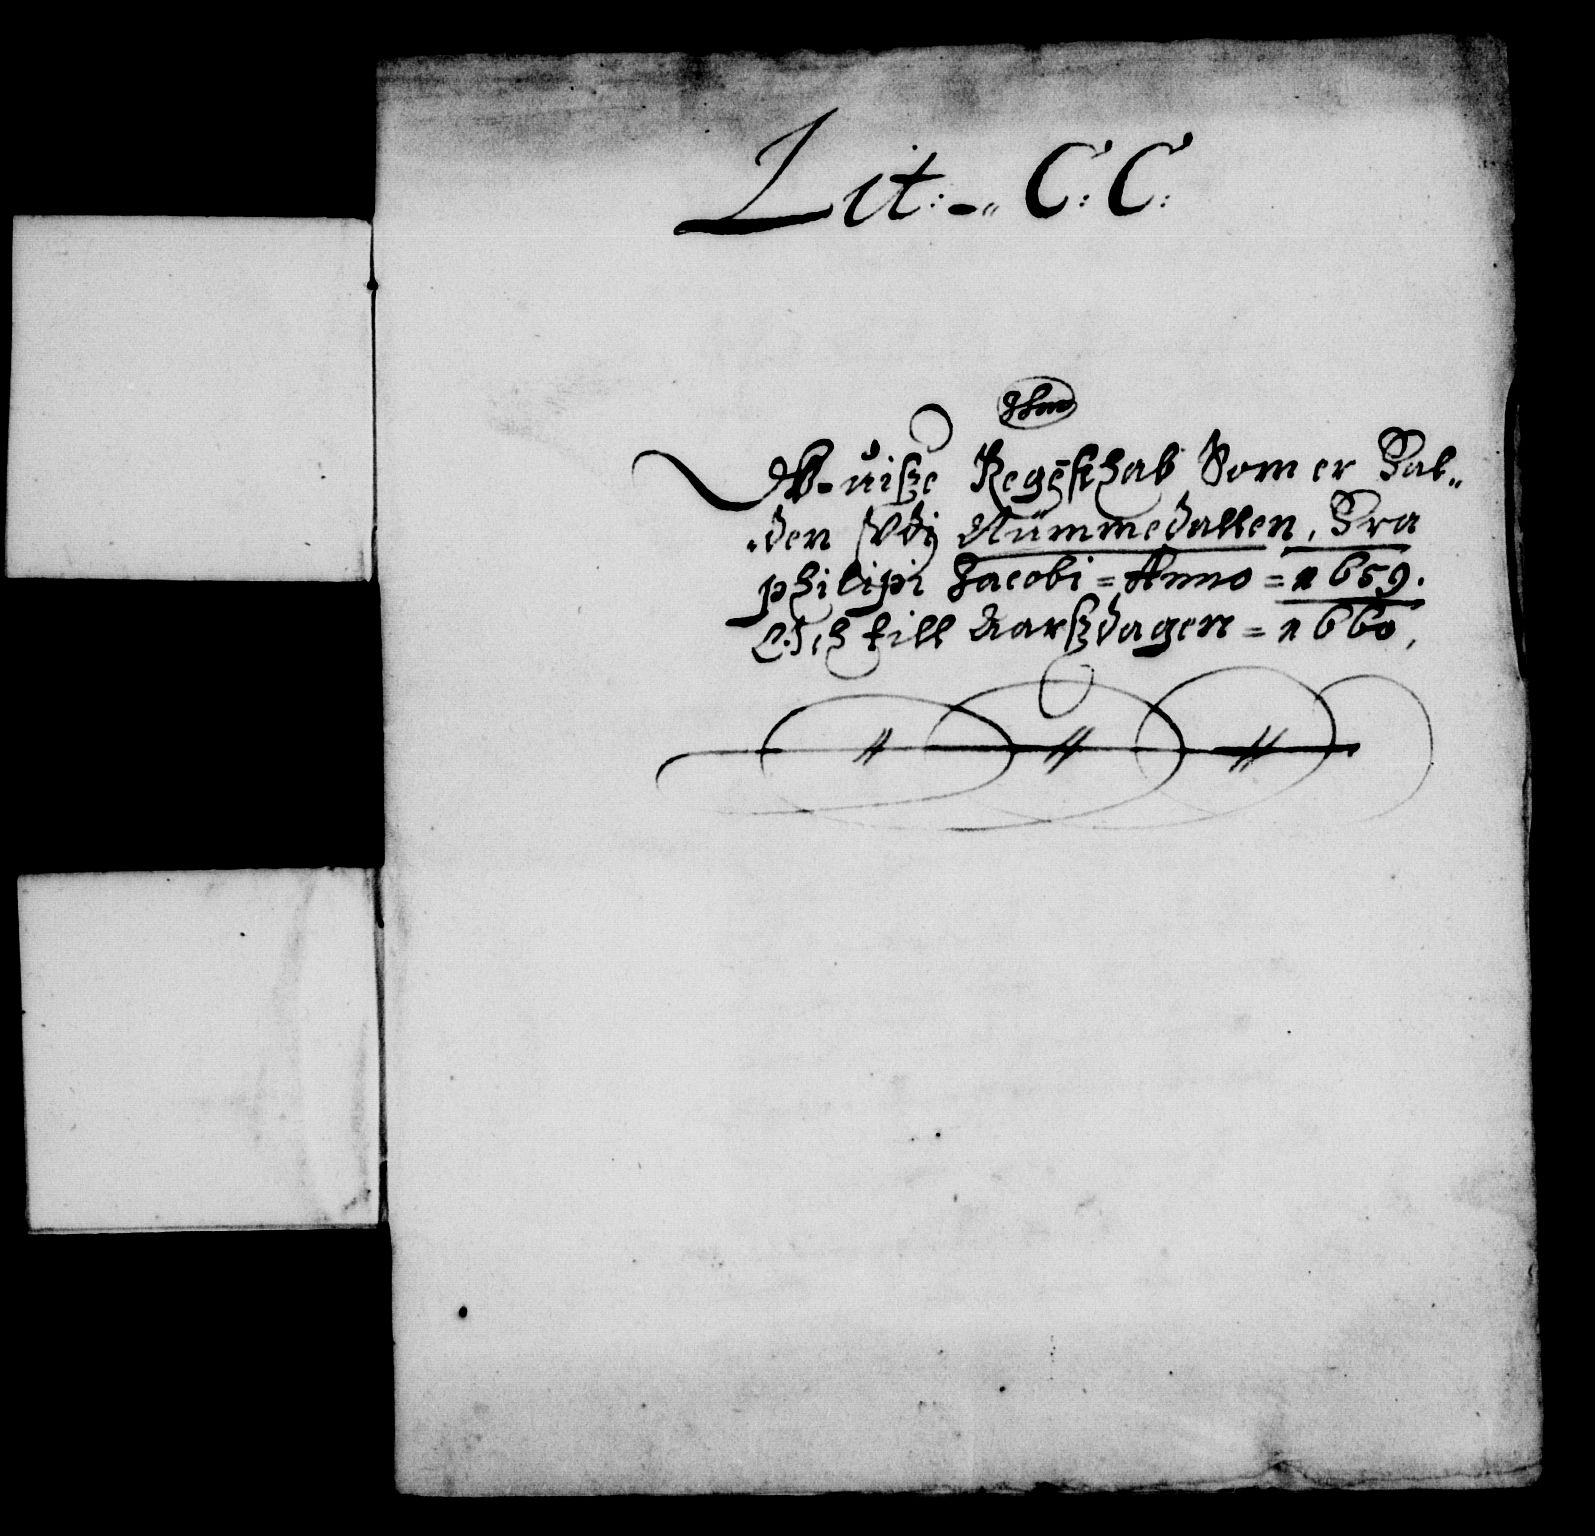 Lit:-„ C: C:
Uvisze Regenskhab Som er Fal„
„den Udj Nümmedallen, Fra
philipi Jacobi = Anno = 1659.
Och till Aarszdagen = 1660,